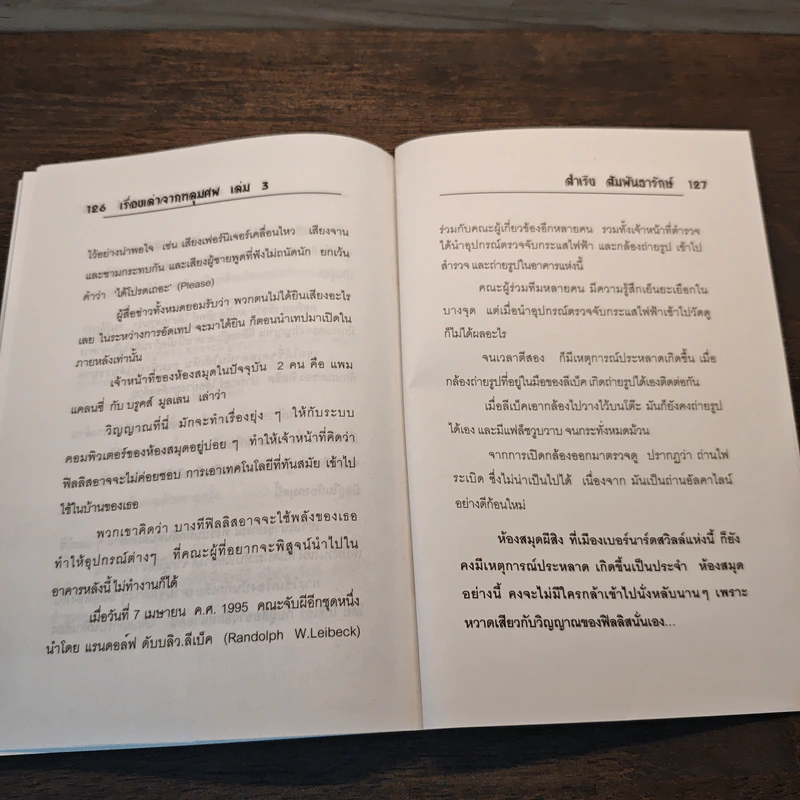 126 เรื่องเล่าจากหลุมศพ เล่ม 3
ไว้อย่างน่าพอใจ เช่น เสียงเฟอร์นิเจอร์เคลื่อนไหว เสียงจาน
และชามกระทบกัน และเสียงผู้ชายพูดที่ฟังไม่ถนัดนัก ยกเว้น
คำว่า "ได้โปรดเถอะ" (Please)
ผู้สื่อข่าวทั้งหมดยอมรับว่า พวกตนไม่ได้ยินเสียงอะไร
เลย ในระหว่างการอัดเทป จะมาได้ยิน ก็ตอนนำเทปมาเปิดใน
ภายหลังเท่านั้น
เจ้าหน้าที่ของห้องสมุดในปัจจุบัน 2 คน คือ แพม
แคลนซี่ กับ บรูคส์ มูลเลน เล่าว่า
วิญญาณที่นี่ มักจะทำเรื่องยุ่ง ๆ ให้กับระบบ
คอมพิวเตอร์ของห้องสมุดอยู่บ่อย ๆ ทำให้เจ้าหน้าที่คิดว่า
ฟิลลิสอาจจะไม่ค่อยชอบ การเอาเทคโนโลยีที่ทันสมัย เข้าไป
ใช้ในบ้านของเธอ
พวกเขาคิดว่า บางทีฟิลลิสอาจจะใช้พลังของเธอ
ทำให้อุปกรณ์ต่างๆ ที่คณะผู้ที่อยากจะพิสูจน์นำไปใน
อาคารหลังนี้ ไม่ทำงานก็ได้
เมื่อวันที่ 7 เมษายน ค.ศ. 1995 คณะจับผีอีกชุดหนึ่ง
นำโดย แรนดอล์ฟ ดับบลิว.ลีเบ็ค (Randolph W.Leibeck)
สำเริง สัมพันธารักษ์ 127
ร่วมกับคณะผู้เกี่ยวข้องอีกหลายคน รวมทั้งเจ้าหน้าที่ตำรวจ
ได้นำอุปกรณ์ตรวจจับกระแสไฟฟ้า และกล้องถ่ายรูป เข้าไป
สำรวจ และถ่ายรูปในอาคารแห่งนี้
คณะผู้ร่วมทีมหลายคน มีความรู้สึกเย็นยะเยือกใน
บางจุด แต่เมื่อนำอุปกรณ์ตรวจจับกระแสไฟฟ้าเข้าไปวัดดู
ก็ไม่ได้ผลอะไร
จนเวลาตีสอง ก็มีเหตุการณ์ประหลาดเกิดขึ้น เมื่อ
กล้องถ่ายรูปที่อยู่ในมือของลีเบ็ค เกิดถ่ายรูปได้เองติดต่อกัน
เมื่อลีเบ็คเอากล้องไปวางไว้บนโต๊ะ มันก็ยังคงถ่ายรูป
ได้เอง และมีแฟล็ชวูบวาบ จนกระทั่งหมดม้วน
จากการเปิดกล้องออกมาตรวจดู ปรากฏว่า ถ่านไฟ
ระเบิด ซึ่งไม่น่าเป็นไปได้ เนื่องจาก มันเป็นถ่านอัลคาไลน์
อย่างดีก้อนใหม่
ห้องสมุดผีสิง ที่เมืองเบอร์นาร์ดสวิลล์แห่งนี้ ก็ยัง
คงมีเหตุการณ์ประหลาด เกิดขึ้นเป็นประจำ ห้องสมุด
อย่างนี้ คงจะไม่มีใครกล้าเข้าไปนั่งหลับนานๆ เพราะ
หวาดเสียวกับวิญญาณของฟิลลิสนั่นเอง...